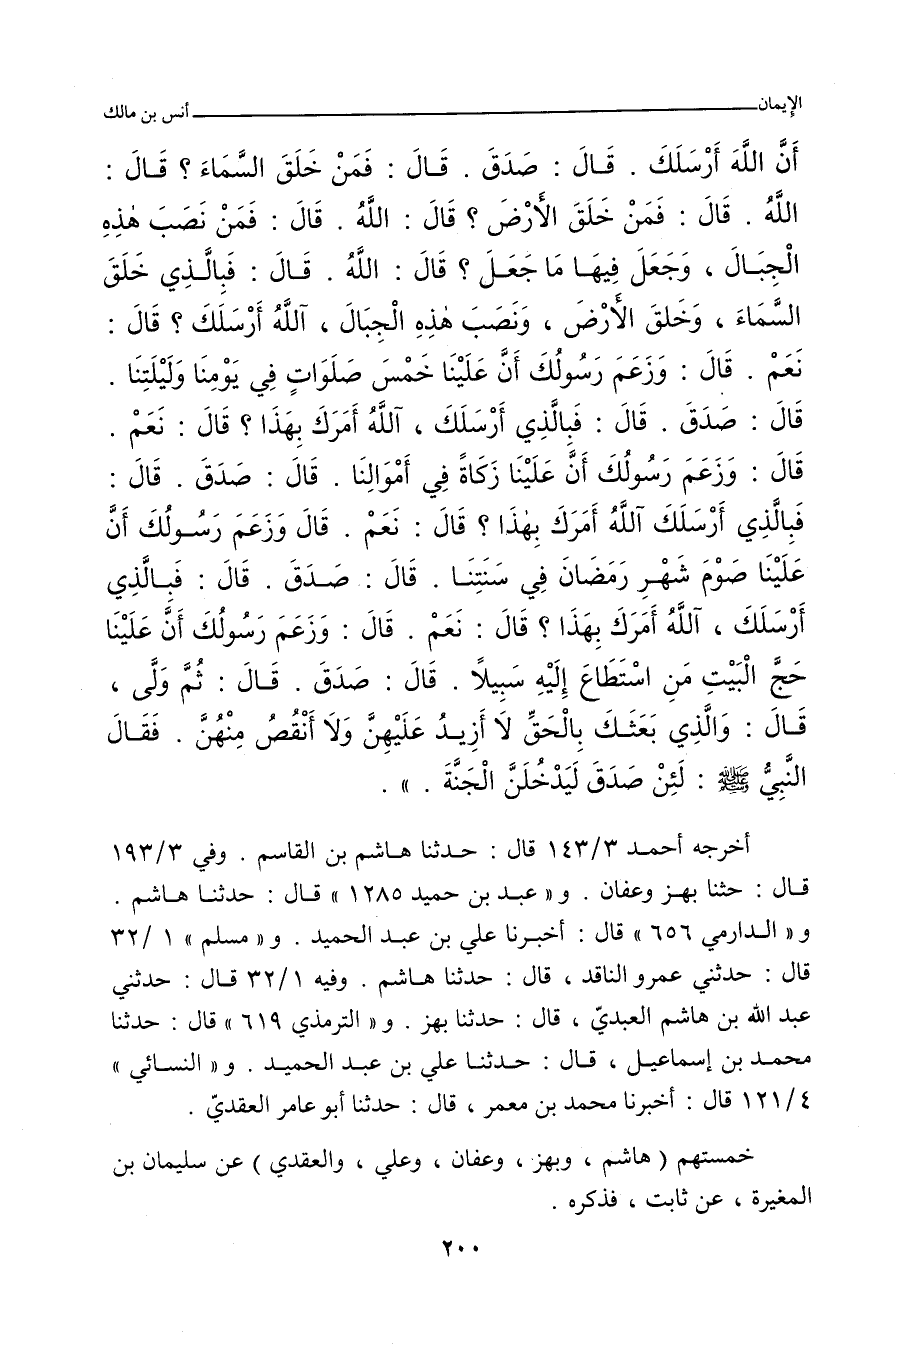 الإيمان أنس بن مالك
أَنَّ اللَّهَ أَرْسَلَكَ . قَالَ : صَدَقَ . قَالَ : فَمَنْ خَلَقَ السَّمَاءَ ؟ قَالَ :
اللَّهُ . قَالَ : فَمَنْ خَلَقَ الأَرْضَ ؟ قَالَ : اللَّهُ . قَالَ : فَمَنْ نَصَبَ هٰذِهِ
الْجِبَالَ ، وَجَعَلَ فِيهَا مَا جَعَلَ ؟ قَالَ : اللَّهُ . قَالَ : فَبِالَّذِي خَلَقَ
السَّمَاءَ ، وَخَلقَ الأَرْضَ ، وَنَصَبَ هٰذِهِ الْجِبَالَ ، آللَّهُ أَرْسَلَكَ ؟ قَالَ :
نَعَمْ . قَالَ : وَزَعَمَ رَسُولُكَ أَنَّ عَلَيْنَا خَمْسَ صَلَوَاتٍ فِي يَوْمِنَا وَلَيْلَتِنَا .
قَالَ : صَدَقَ . قَالَ : فَبِالَّذِي أَرْسَلَكَ ، آللَّهُ أَمَرَكَ بِهَذَا ؟ قَالَ : نَعَمْ .
قَالَ : وَزَعَمَ رَسُولُكَ أَنَّ عَلَيْنَا زَكَاةً فِي أَمْوَالِنَا . قَالَ : صَدَقَ . قَالَ :
فَبِالَّذِي أَرْسَلَكَ آللَّهُ أَمَرَكَ بِهٰذَا ؟ قَالَ : نَعَمْ . قَالَ وَزَعَمَ رَسُولُكَ أَنَّ
عَلَيْنَا صَوْمَ شَهْرِ رَمَضَانَ فِي سَنَتِنَا . قَالَ : صَدَقَ . قَالَ : فَبِالَّذِي
أَرْسَلَكَ ، آللَّهُ أَمَرَكَ بِهَذَا ؟ قَالَ : نَعَمْ . قَالَ : وَزَعَمَ رَسُولُكَ أَنَّ عَلَيْنَا
حَجَّ الْبَيْتِ مَنِ اسْتَطَاعَ إِلَيْهِ سَبِيلاً . قَالَ : صَدَقَ . قَالَ : ثُمَّ وَلَّى ،
قَالَ : وَالَّذِي بَعَثَكَ بِالْحَقِّ لَا أَزِيدُ عَلَيْهِنَّ وَلَا أَنْقُصُ مِنْهُنَّ . فَقَالَ
النَّبِيُّ ﷺ : لَئِنْ صَدَقَ لَيَدْخُلَنَّ الْجَنَّةَ . » .
أخرجه أحمد ١٤٣/٣ قال : حدثنا هاشم بن القاسم . وفي ١٩٣/٣
قال : حثنا بهز وعفان . و « عبد بن حميد ١٢٨٥ » قال : حدثنا هاشم .
و « الدارمي ٦٥٦ » قال : أخبرنا علي بن عبد الحميد . و « مسلم » ١ /٣٢
قال : حدثني عمرو الناقد ، قال : حدثنا هاشم . وفيه ٣٢/١ قال : حدثني
عبد الله بن هاشم العبديّ ، قال : حدثنا بهز . و « الترمذي ٦١٩ » قال : حدثنا
محمد بن إسماعيل ، قال : حدثنا علي بن عبد الحميد . و « النسائي »
١٢١/٤ قال : أخبرنا محمد بن معمر ، قال : حدثنا أبو عامر العقديّ .
خمستهم ( هاشم ، وبهز ، وعفان ، وعلي ، والعقدي ) عن سليمان بن
المغيرة ، عن ثابت ، فذكره .
٢٠٠